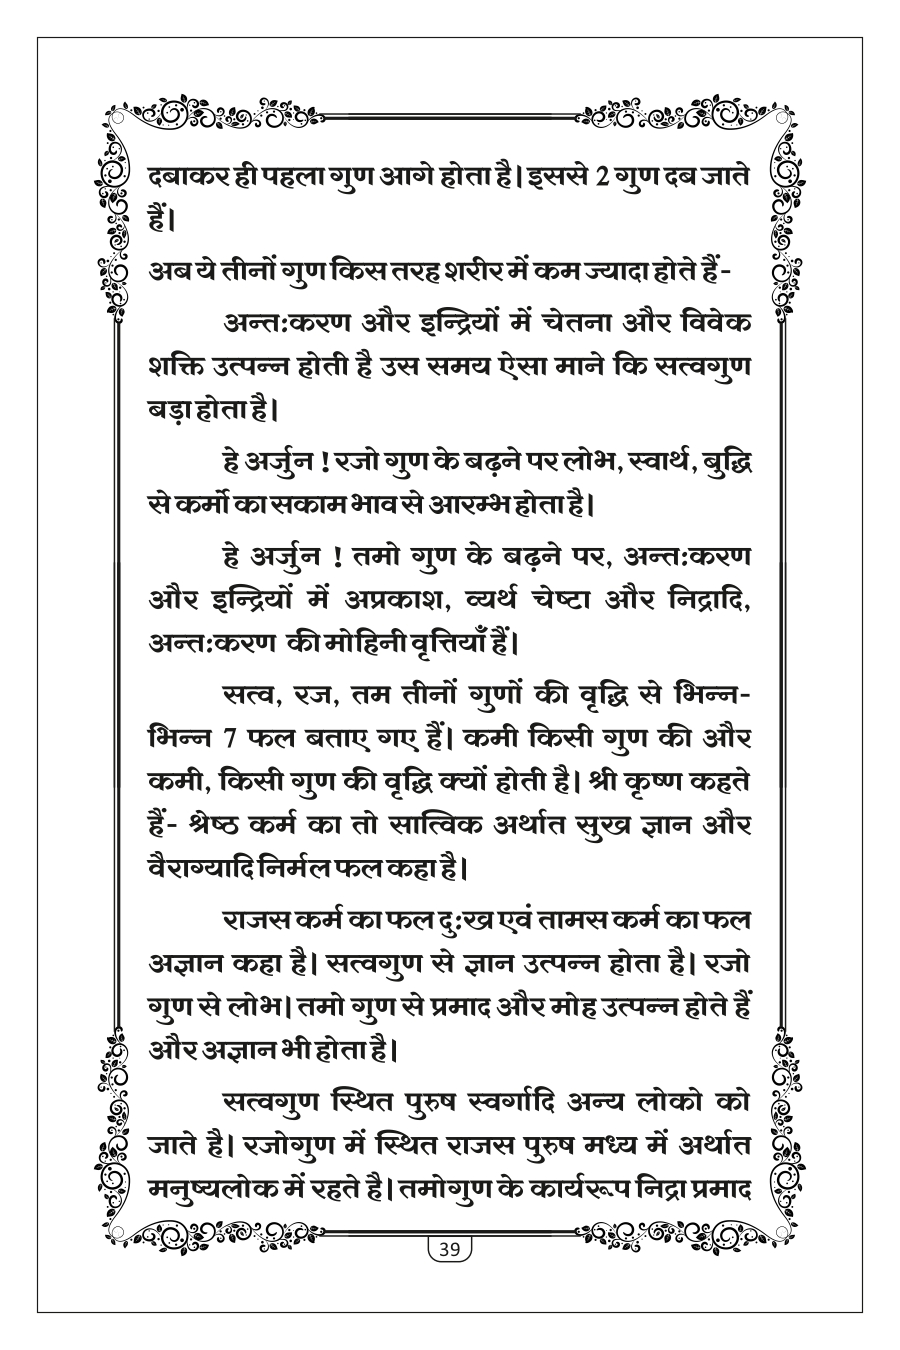 दबाकर ही पहला गुण आगे होता है। इससे 2 गुण दब जाते
हैं।
अब ये तीनों गुण किस तरह शरीर में कम ज्यादा होते हैं-
अन्त:करण और इन्द्रियों में चेतना और विवेक
शक्ति उत्पन्न होती है उस समय ऐसा माने कि सत्वगुण
बड़ा होता है।
हे अर्जुन ! रजो गुण के बढ़ने पर लोभ, स्वार्थ, बुद्धि
से कर्मो का सकाम भाव से आरम्भ होता है।
हे अर्जुन ! तमो गुण के बढ़ने पर, अन्त:करण
और इन्द्रियों में अप्रकाश, व्यर्थ चेष्टा और निद्रादि,
अन्त:करण की मोहिनी वृत्तियाँ हैं।
सत्व, रज, तम तीनों गुणों की वृद्धि से भिन्न-
भिन्न 7 फल बताए गए हैं। कमी किसी गुण की और
कमी, किसी गुण की वृद्धि क्यों होती है। श्री कृष्ण कहते
हैं- श्रेष्ठ कर्म का तो सात्विक अर्थात सुख ज्ञान और
वैराग्यादि निर्मल फल कहा है।
राजस कर्म का फल दु:ख एवं तामस कर्म का फल
अज्ञान कहा है। सत्वगुण से ज्ञान उत्पन्न होता है। रजो
गुण से लोभ। तमो गुण से प्रमाद और मोह उत्पन्न होते हैं
और अज्ञान भी होता है।
सत्वगुण स्थित पुरुष स्वर्गादि अन्य लोको को
जाते है। रजोगुण में स्थित राजस पुरुष मध्य में अर्थात
मनुष्यलोक में रहते है। तमोगुण के कार्यरूप निद्रा प्रमाद
39